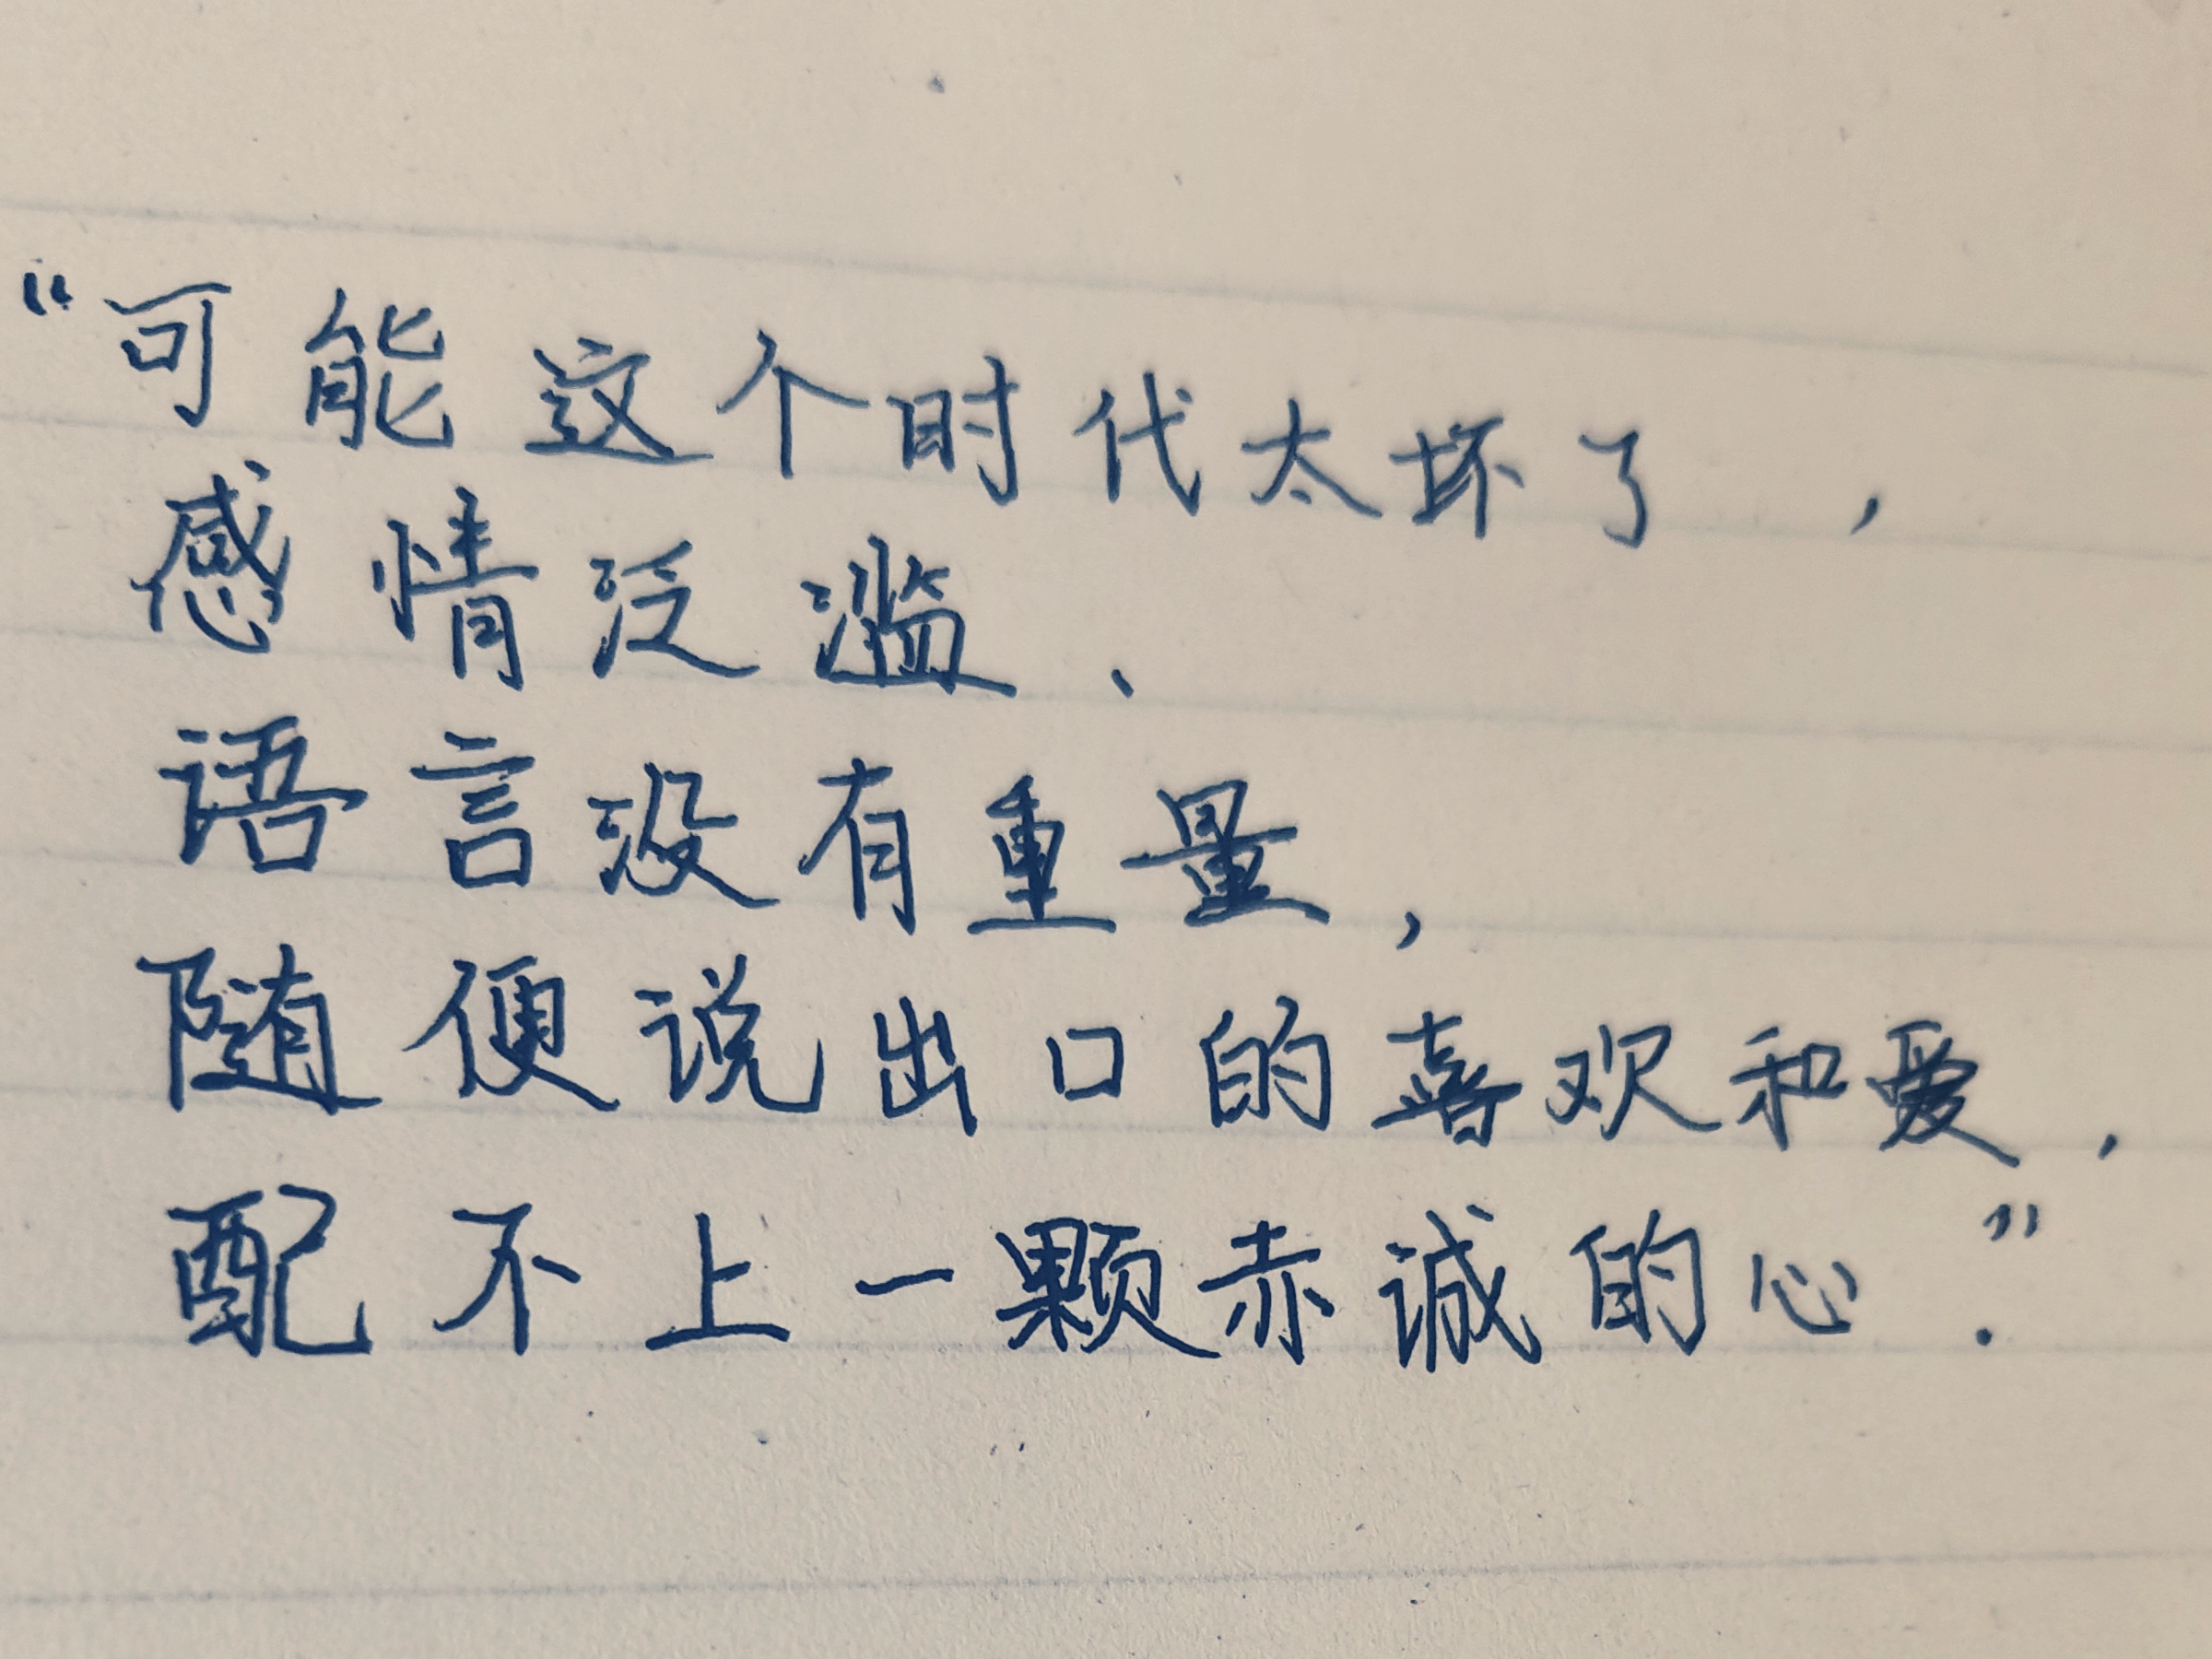 “可能这个时代太坏了，
感情泛滥、
语言没有重量，
随便说出口的喜欢和爱，
配不上一颗赤诚的心.”